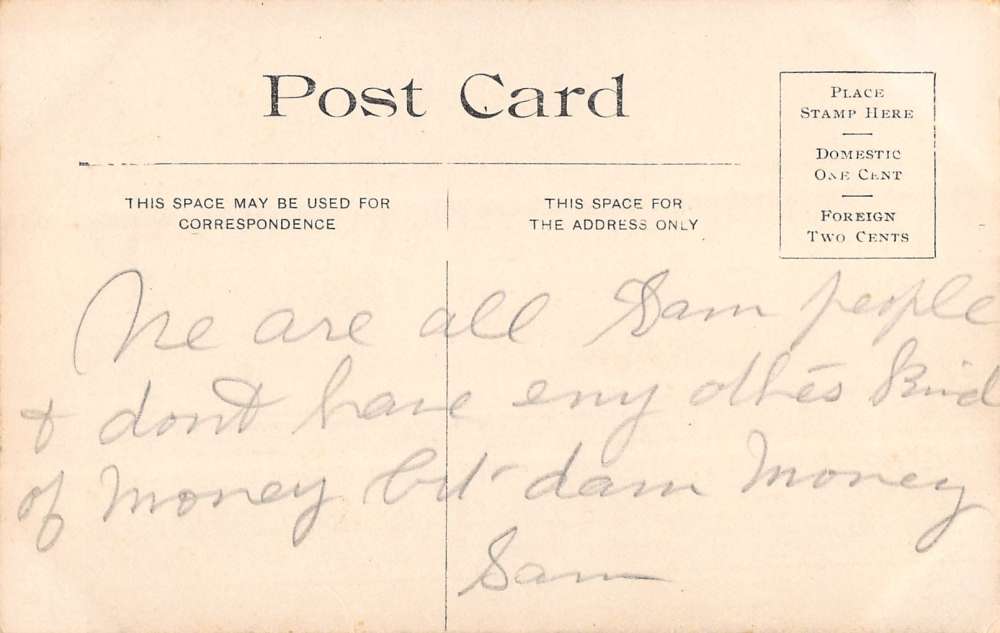 Post Card
PLACE
STAMP HERE
DOMESTIC
ONE CENT
FOREIGN
TWO CENTS
THIS SPACE MAY BE USED FOR
CORRESPONDENCE
THIS SPACE FOR
THE ADDRESS ONLY
We are all Sam people
& dont have eny other kind
of money but dam money
Sam